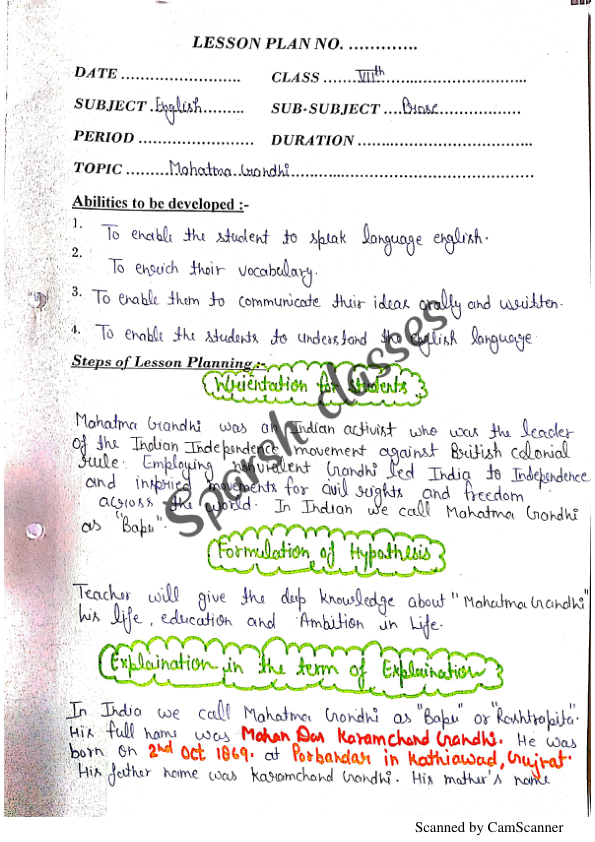 LESSON PLAN NO. .............
DATE ........................ CLASS ......VIIth............................
SUBJECT .English......... SUB-SUBJECT ....Prose..................
PERIOD ....................... DURATION ...................................
TOPIC .........Mahatma Gandhi..................................................
Abilities to be developed :-
1. To enable the student to speak language english.
2. To enrich their vocabulary.
3. To enable them to communicate their ideas orally and written.
4. To enable the students to understand the english language.
Steps of Lesson Planning :-
for students
Mahatma Gandhi was an Indian activist who was the leader
of the Indian Independence movement against British colonial
rule. Employing nonviolent Gandhi led India to Independence
and inspried movements for civil rights and freedom
across the world. In Indian we call Mahatma Gandhi
as "Bapu".
Formulation of Hypothesis
Teacher will give the deep knowledge about "Mahatma Gandhi"
his life, education and Ambition in Life.
Explaination in the term of Explaination
In India we call Mahatma Gandhi as "Bapu" or "Rashtrapita".
His full name was Mohan Das Karamchand Gandhi. He was
born on 2nd Oct 1869. at Porbandar in Kathiawad, Gujrat.
His father name was Karamchand Gandhi. His mother's name
Sparsh classes
Scanned by CamScanner